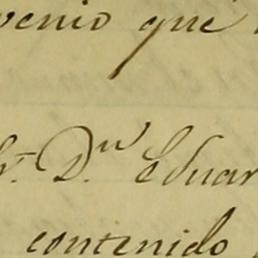 venio que
Sr. Dn Eduar
contenido